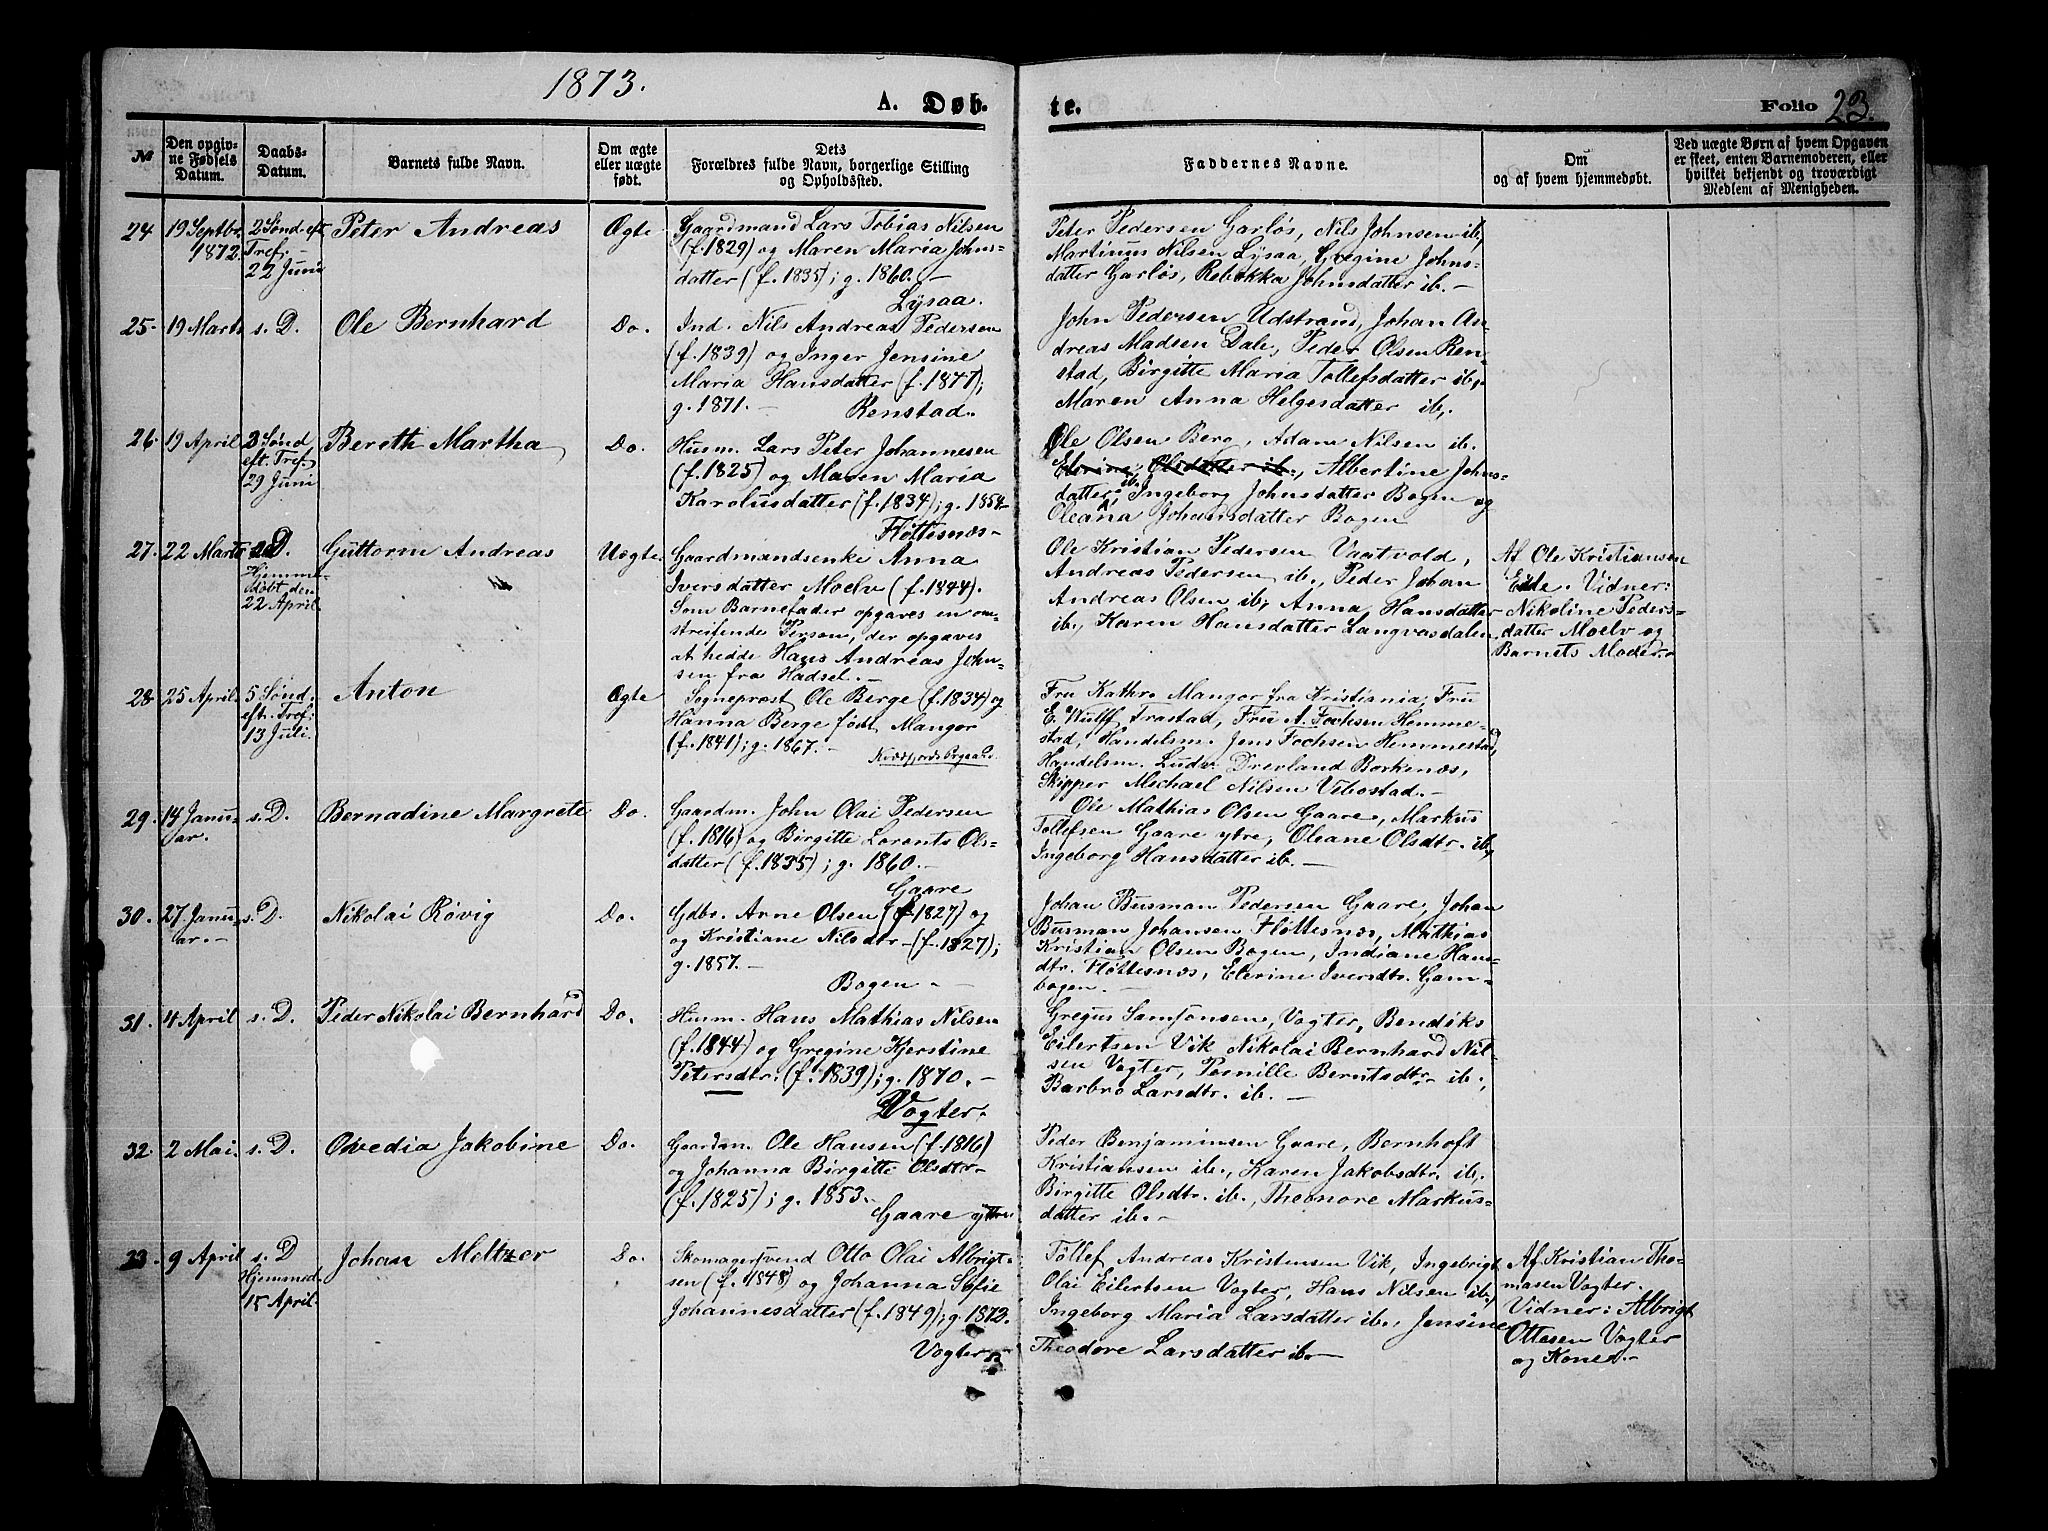 1873.
A. Døb.
te.
Folio 23.
№
Den opgiv-
ne Fødsels
Datum.
Daabs-
Datum.
Barnets fulde Navn.
Om ægte
eller uægte
født.
Dets
Forældres fulde Navn, borgerlige Stilling
og Opholdssted.
Faddernes Navne.
Om
og af hvem hjemmedøbt.
Ved uægte Børn af hvem Opgaven
er skeet, enten Barnemoderen, eller
hvilket bekjendt og troværdigt
Medlem af Menigheden.
24
19 Septbr.
1872.
2 Sønd. eft.
Tref.
22 Juni
Peter Andreas
Ægte
Gaardmand Lars Tobias Nilsen
(f. 1829) og Maren Maria Johns-
datter (f. 1835); g. 1860. –
Lysaa.
Peter Pedersen Garløs, Nils Johnsen ib,
Martinus Nilsen Lysaa, Gregine Johns-
datter Garløs, Rebekka Johnsdatter ib. –
25.
19 Marts
s. D.
Ole Bernhard
Do.
Ind. Nils Andreas Pedersen
(f. 1839) og Inger Jensine
Maria Hansdatter (f. 1847);
g. 1871. –
Renstad.
John Pedersen Udstrand, Johan An-
dreas Madsen Dale, Peder Olsen Ren-
stad, Birgitte Maria Tollefsdatter ib,
Maren Anna Helgesdatter ib,
26.
19 April
3 Sønd
eft. Tref.
29 Juni
Bereth Martha
Do.
Husm. Lars Peter Johannesen
(f. 1825) og Maren Maria
Karolusdatter (f. 1834); g. 1854
Fløttesnæs –
Ole Olsen Berg, Adam Nilsen ib.
Elerine Olsdatter ib., Albertine Johns-
datter ib. Ingeborg Johnsdatter Bogen og
Oleana Johansdatter Bogen
27.
22 Marts
s. D.
Hjemme-
døbt den
22 April.
Guttorm Andreas
Uægte
Gaardmandsenke Anna
Iversdatter Moelv (f. 1844).
Som Barnefader opgaves en om-
streifende Person, der opgaves
at hedde Hans Andreas John-
sen fra Hadsel. –
Ole Kristian Pedersen Vaatvold,
Andreas Pedersen ib., Peder Johan
Andreas Olsen ib, Anna Hansdatter
ib, Karen Hansdatter Langvasdalen
Af Ole Kristiansen
Eide. Vidner:
Nikoline Peders-
datter Moelv og
Barnets Moder.
28
25 April
5 Sønd.
eft. Tref.
13 Juli.
Anton
Ægte
Sogneprest Ole Berge (f. 1834) og
Hanna Berge født Mangor
(f. 1841); g. 1867. –
Kvæfjords Prgaard.
Fru Kathr. Mangor fra Kristiania, Fru
E. Wulff Trastad, Fru A. Fochsen Hemme-
stad, Handelsm. Jens Fochsen Hemmestad,
Handelsm. Luder Dreyland Borkenæs,
Skipper Michael Nilsen Vebostad. –
29.
14 Janu-
ar.
s. D.
Bernadine Margrete
Do.
Gaardm. John Olai Pedersen
(f. 1816) og Birgitte Lorents Ols-
datter (f. 1835); g. 1860. –
Gaare
Ole Mathias Olsen Gaare, Markus
Tollefsen Gaare ytre, Oleane Olsdtr. ib,
Ingeborg Hansdatter ib. –
30.
27. Janu-
ar. –
s. D.
Nikolai Røvig
Do.
Gdbr. Arne Olsen (f 1827) og
og Kristiane Nilsdtr – (f. 1827);
g. 1857. –
Bogen. –
Johan Busman Pedersen Gaare, Johan
Busman Johansen Fløttesnæs, Mathias
Kristian Olsen Bogen, Indiane Hans-
dtr. Fløttesnæs, Elerine Iversdtr. Gam-
bogen. –
31.
4 April
s. D.
Peder Nikolai Bernhard
Do.
Husm. Hans Mathias Nilsen
(f. 1844) og Gregine Kjerstine
Petersdtr. (f. 1839); g. 1870. –
Vogter.
Gregus Samsonsen, Vogter, Bendiks
Eilertsen Vik Nikolai Bernhard Nil-
sen Vogter, Pernille Berntsdtr. ib.,
Barbro Larsdtr. ib. –
32.
2 Mai.
s. D.
Ovedia Jakobine
Do.
Gaardm. Ole Hansen (f. 1816)
og Johanna Birgitte Olsdtr –
(f. 1825); g. 1853. –
Gaare ytre
Peder Benjaminsen Gaare, Bernhoft
Kristiansen ib., Karen Jakobsdtr. ib,
Birgitte Olsdtr. ib., Theonore Markus-
datter ib. –
33.
9 April
s. D
Hjemmed.
15 April.
Johan Meltzer
Do.
Skomagersvend Otto Olai Albrigt-
sen (f. 1848) og Johanna Sofie
Johannesdatter (f. 1849); g. 1872.
Vogter
Tollef Andreas Kristensen Vik, Ingebrigt
Olai Eilertsen Vogter, Hans Nilsen ib,
Ingeborg Maria Larsdatter ib., Jensine
Theodore Larsdatter ib. –
Af Kristian Tho-
masen Vogter.
Vidner: Albrigt
Ottesen Vogter
og Kone. –